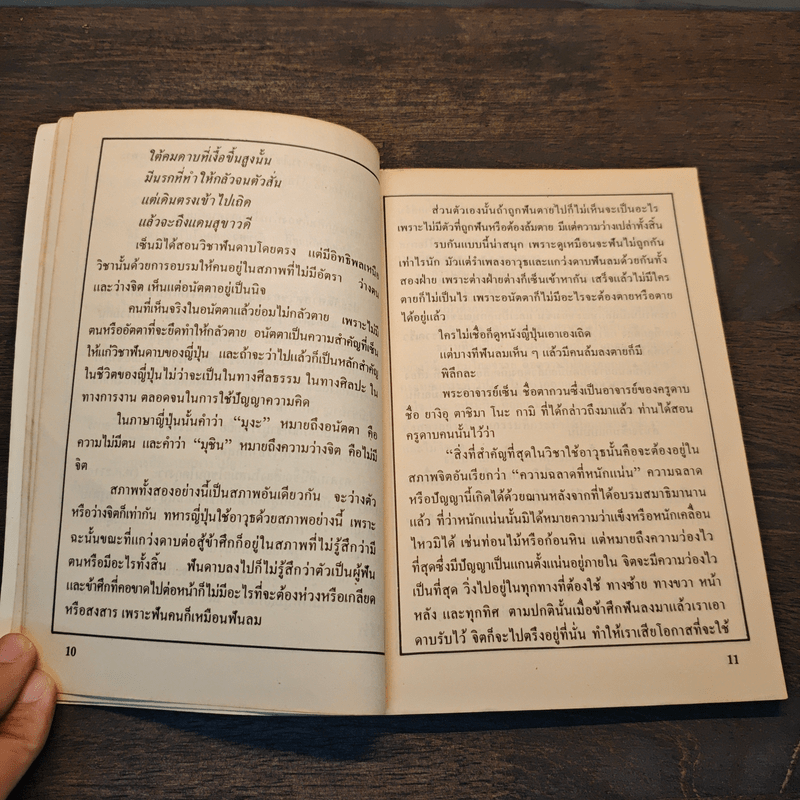 ใต้คมดาบที่เงื้อขึ้นสูงนั้น
มีนรกที่ทำให้กลัวจนตัวสั่น
แต่เดินตรงเข้าไปเถิด
แล้วจะถึงแดนสุขาวดี
เซ็นมิได้สอนวิชาฟันดาบโดยตรง แต่มีอิทธิพลเหนือ
วิชานั้นด้วยการอบรมให้คนอยู่ในสภาพที่ไม่มีอัตรา ว่างตน
และว่างจิต เห็นแต่อนัตตาอยู่เป็นนิจ
คนที่เห็นจริงในอนัตตาแล้วย่อมไม่กลัวตาย เพราะไม่มี
ตนหรืออัตตาที่จะยึดทำให้กลัวตาย อนัตตาเป็นความสำคัญที่เซ็น
ให้แก่วิชาฟันดาบของญี่ปุ่น และถ้าจะว่าไปแล้วก็เป็นหลักสำคัญ
ในชีวิตของญี่ปุ่นไม่ว่าจะเป็นในทางศีลธรรม ในทางศิลปะ ใน
ทางการงาน ตลอดจนในการใช้ปัญญาความคิด
ในภาษาญี่ปุ่นนั้นคำว่า “มุงะ” หมายถึงอนัตตา คือ
ความไม่มีตน และคำว่า “มุชิน” หมายถึงความว่างจิต คือไม่มี
จิต
สภาพทั้งสองอย่างนี้เป็นสภาพอันเดียวกัน จะว่างตัว
หรือว่างจิตก็เท่ากัน ทหารญี่ปุ่นใช้อาวุธด้วยสภาพอย่างนี้ เพราะ
ฉะนั้นขณะที่แกว่งดาบต่อสู้ข้าศึกก็อยู่ในสภาพที่ไม่รู้สึกว่ามี
ตนหรือมีอะไรทั้งสิ้น ฟันดาบลงไปก็ไม่รู้สึกว่าตัวเป็นผู้ฟัน
และข้าศึกที่คอขาดไปต่อหน้าก็ไม่มีอะไรที่จะต้องห่วงหรือเกลียด
หรือสงสาร เพราะฟันคนก็เหมือนฟันลม
10
ส่วนตัวเองนั้นถ้าถูกฟันตายไปก็ไม่เห็นจะเป็นอะไร
เพราะไม่มีตัวที่ถูกฟันหรือต้องล้มตาย มีแต่ความว่างเปล่าทั้งสิ้น
รบกันแบบนี้น่าสนุก เพราะดูเหมือนจะฟันไม่ถูกกัน
เท่าไรนัก มัวแต่รำเพลงอาวุธและแกว่งดาบฟันลมด้วยกันทั้ง
สองฝ่าย เพราะต่างฝ่ายต่างก็เซ็นเข้าหากัน เสร็จแล้วก็ไม่มีใคร
ตายก็ไม่เป็นไร เพราะอนัตตาก็ไม่มีอะไรจะต้องตายหรือตาย
ได้อยู่แล้ว
ใครไม่เชื่อก็ดูหนังญี่ปุ่นเอาเองเถิด
แต่บางทีฟันลมเห็น ๆ แล้วมีคนล้มลงตายก็มี
พิลึกละ
พระอาจารย์เซ็น ชื่อตากวนซึ่งเป็นอาจารย์ของครูดาบ
ชื่อ ยางิอุ ตาชิมา โนะ กามิ ที่ได้กล่าวถึงมาแล้ว ท่านได้สอน
ครูดาบคนนั้นไว้ว่า
“สิ่งที่สำคัญที่สุดในวิชาใช้อาวุธนั้นคือจะต้องอยู่ใน
สภาพจิตอันเรียกว่า “ความฉลาดที่หนักแน่น” ความฉลาด
หรือปัญญานี้เกิดได้ด้วยฌานหลังจากที่ได้อบรมสมาธิมานาน
แล้ว ที่ว่าหนักแน่นนั้นมิได้หมายความว่าแข็งหรือหนักเคลื่อน
ไหวมิได้ เช่นท่อนไม้หรือก้อนหิน แต่หมายถึงความว่องไว
ที่สุดซึ่งมีปัญญาเป็นแกนตั้งแน่นอยู่ภายใน จิตจะมีความว่องไว
เป็นที่สุด วิ่งไปอยู่ในทุกทางที่ต้องใช้ ทางซ้าย ทางขวา หน้า
หลัง และทุกทิศ ตามปกตินั้นเมื่อข้าศึกฟันลงมาแล้วเราเอา
ดาบรับไว้ จิตก็จะไปตรึงอยู่ที่นั่น ทำให้เราเสียโอกาสที่จะใช้
11